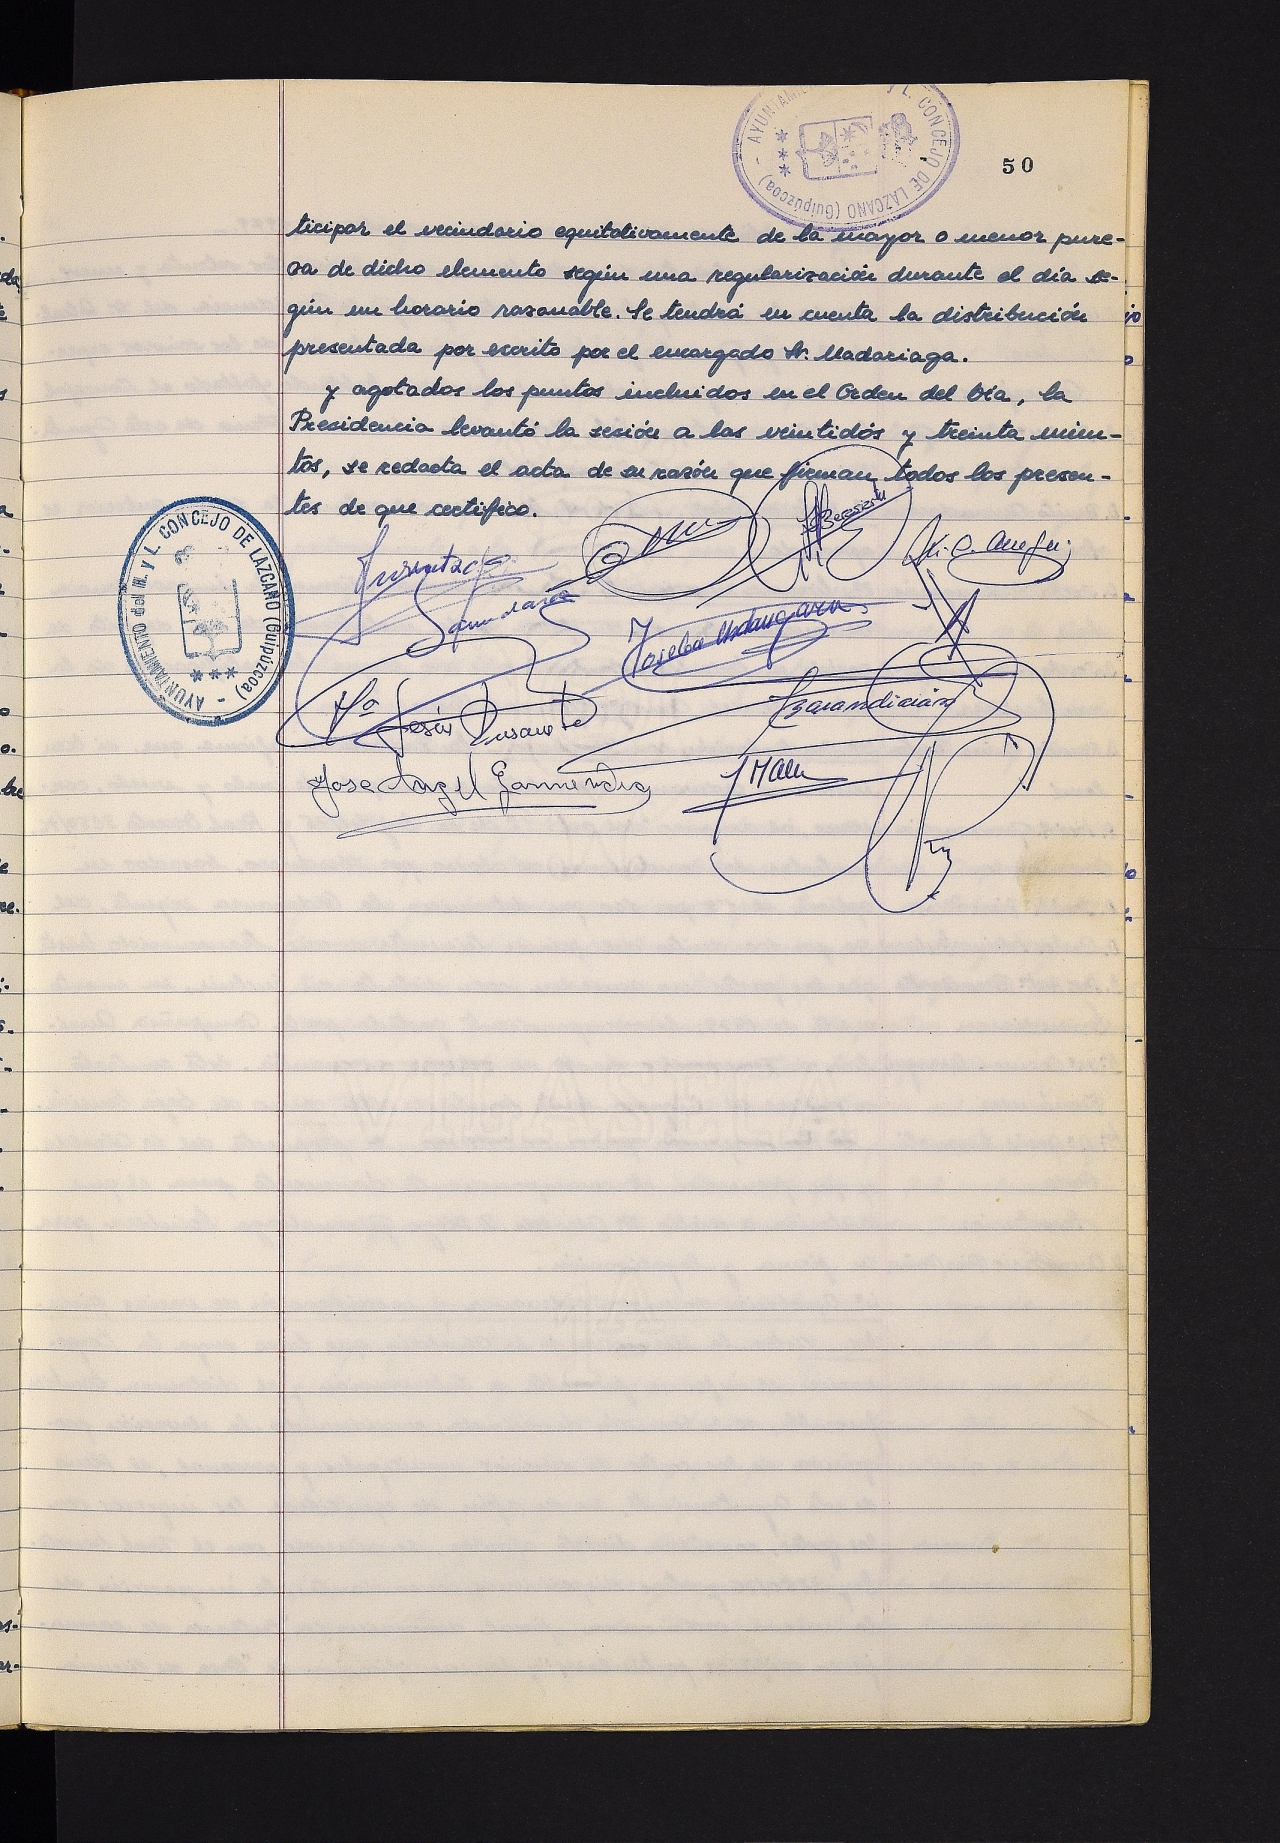 AYUNTAMI Y L. CONCEJO DE LAZCANO (Guipúzcoa) -
50
ticipar el vecindario equitativamente de la mayor o menor pure-
za de dicho elemento según una regularización durante el día se-
gún un horario razonable. Se tendrá en cuenta la distribución
presentada por escrito por el encargado Sr. Madariaga.
y agotados los puntos incluidos en el Orden del Día, la
Presidencia levantó la sesión a las veintidós y treinta minu-
tos, se redacta el acta de su razón que firman todos los presen-
tes de que certifico.
AYUNTAMIENTO del M. Y L. CONCEJO DE LAZCANO (Guipúzcoa) -
Mª Jesús
Jose Angel Garmendia